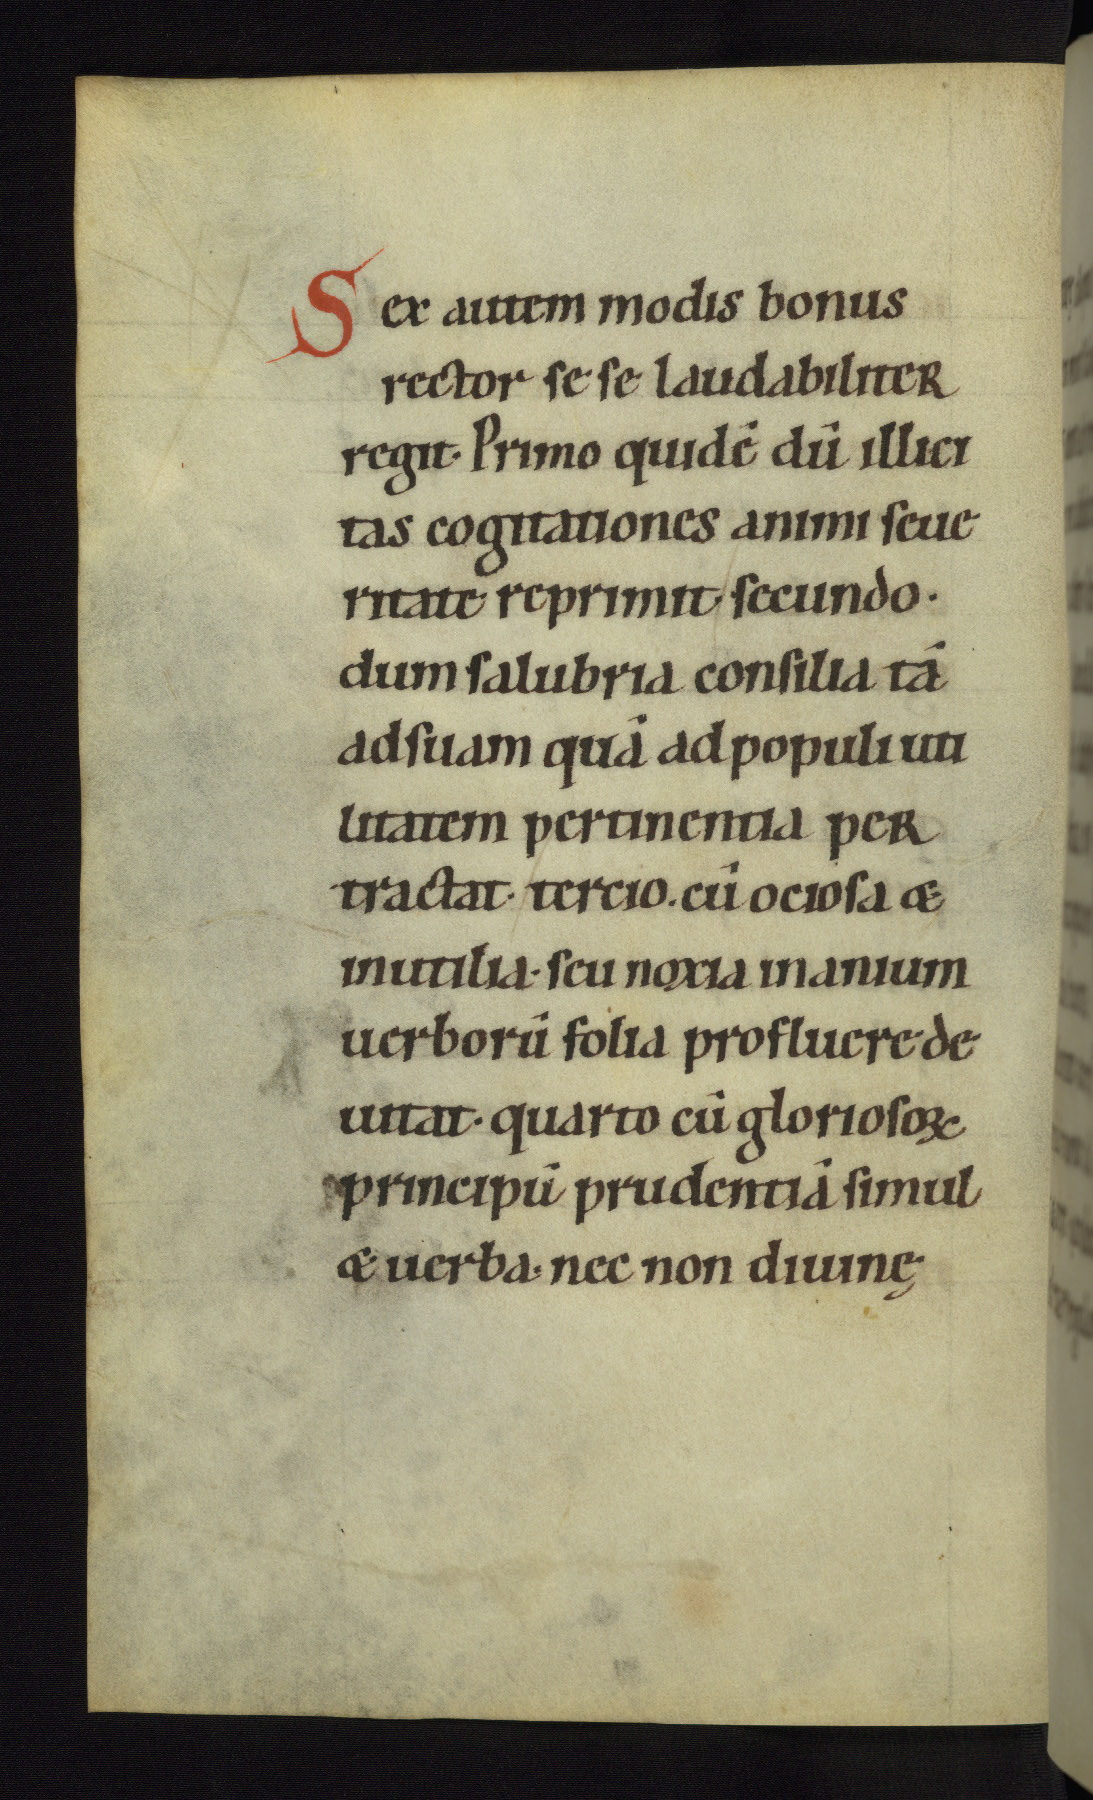 Sex autem modis bonus
rector se se laudabiliteR
regit· Primo quidē dū illici
tas cogitationes animi seue
ritate reprimit· secundo·
dum salubria consilia tā
ad suam quā ad populi uti
litatem pertinentia peR
tractat· tercio. cū ociosa &
inutilia· seu noxia inanium
uerborū folia profluere de
uitat· quarto cū gloriosoꝝ
principū prudentiā simul
& uerba· nec non diuinę